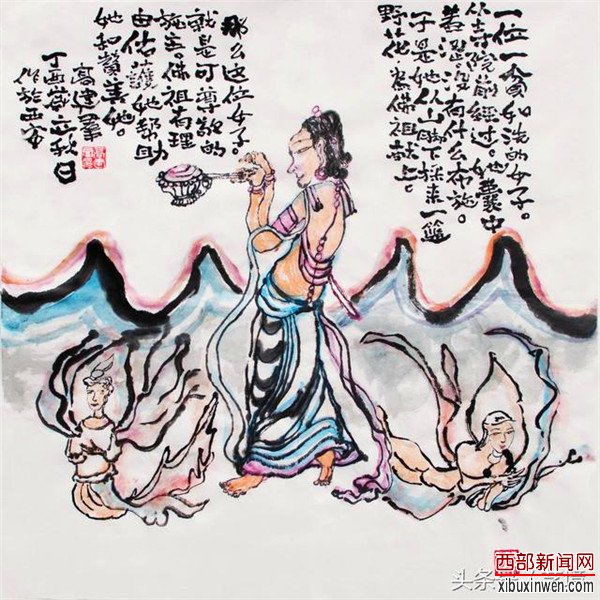 一位一贫如洗的女子。
从寺院前经过。她囊中
羞涩没有什么布施。
于是她从山脚下採来一篮
野花为佛祖献上。
那么这位女子。
就是可尊敬的
施主。佛祖有理
由佑护她帮助
她和赞美她。
高建群
丁酉岁立秋日
作於西安
头条
西部新闻网
xibuxinwen.com